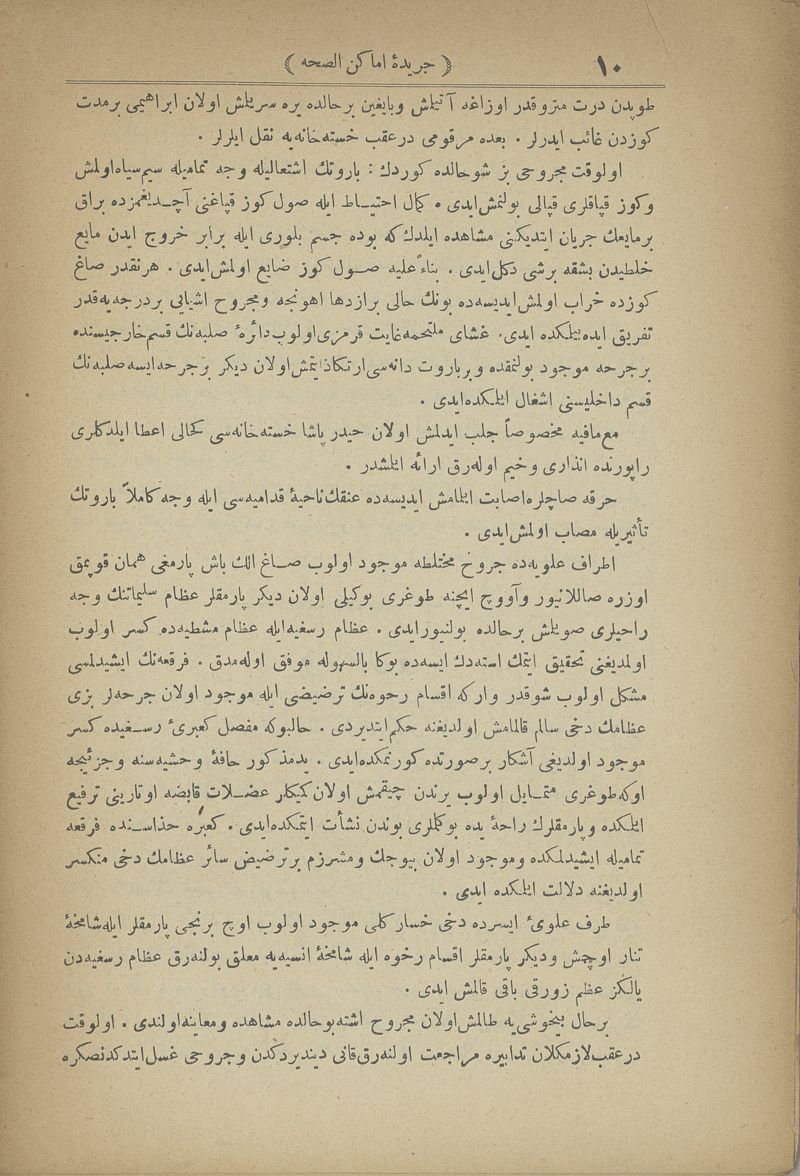 ١٠
﴿ جريدۀ اماكن الصحه ﴾
طوپدن درت متروقدر اوزاغه آتیلش وبایغین برحالده یره سریلش اولان ابراهیمی برمدت
كوزدن غائب ایدرلر . بعده مرقومی درعقب خسته‌خانه‌یه نقل ایلرلر .
اولوقت مجروحی بز شوحالده كوردك : باروتك اشتعالیله وجه تمامیله سیم‌سیاه اولمش
وكوز قپاقلری قپالی بولنمش‌ایدی . كمال احتیـاط ایله صول كوز قپاغنی آچـدیغمزده براق
برمایعك جریان ایتدیكنی مشاهده ایلدك كه بوده جسم بلوری ایله برابر خروج ایدن مایع
خلطیدن بشقه برشی دكل‌ایدی . بناءً علیه صـول كوز ضایع اولمش‌ایدی . هرنقدر صاغ
كوزده خراب اولمش‌ایدیسه‌ده بونك حالی برازدها اهونجه ومجروح اشیایی بردرجه‌یه‌قدر
تفریق ایده‌بیلكده ایدی. غشای ملتحمه غایت قرمزی اولوب دائرۀ صلبه‌نك قسم خارجیسنده
برجرحه موجود بولنمقده وبرباروت دانه‌سی ارتكاذ ایتمش‌اولان دیكر برجرحه ایسه صلبه‌نك
قسم داخلیسنی اشغال ایلكده‌ایدی .
مع‌مافیه مخصوصاً جلب ایدلمش اولان حیدر پاشا خسته‌خانه‌سی كحالی اعطا ایلدكلری
راپورنده انذاری وخیم اوله‌رق ارائه ایلمشدر .
حرقه صاچلره اصابت ایلمامش ایدیسه‌ده عنقك ناحیۀ قدامیه‌سی ایله وجه كاملاً باروتك
تأثیریله مصاب اولمش‌ایدی .
اطراف علویه‌ده جروح مختلطه موجود اولوب صـاغ الك باش پارمغی همان قوپمق
اوزره صاللانیور وآووچ ایچنه طوغری بوكیلی اولان دیكر پارمقلر عظام سلیماتنك وجه
راحیلری صویلمش برحالده بولنیورایدی . عظام رسغیه ایله عظام مشطیه‌ده كسر اولوب
اولمدیغنی تحقیق ایتمك استه‌دك ایسه‌ده بوكا بالسهوله موفق اوله‌مدق . فرقعه‌نك ایشیدلمسی
مشكل اولوب شوقدر واركه اقسام رخوه‌نك ترضیضی ایله موجود اولان جرحه‌لر بزی
عظامك دخی سالم قالمامش اولدیغنه حكم ایتدیردی . حالبوكه مفصل كعبریٔ رسـغیده كسر
موجود اولدیغی آشكار برصورتده كورنمكده‌ایدی . یدمذكور حافۀ وحشیه‌سنه وجزئیجه
اوكه طوغری متمـایل اولوب یرندن چیقمش اولان كمیكلر عضـلات قابضه اوتارینی ترفیع
ایلكده وپارمقلرك راحۀ یده بوكملری بوندن نشأت ایتمكده‌ایدی . كعبره حذاسـنده فرقعه
تمامیله ایشیدلمكده وموجود اولان بیوجك ومشرزم برترضیض سائر عظامك دخی منكسر
اولدیغنه دلالت ایلكده ایدی .
طرف علویٔ ایسرده دخی خسار كلی موجود اولوب اوچ برنجی پارمقلر ایله شامخۀ
تنار اوچمش ودیكر پارمقلر اقسام رخوه ایله شامخۀ انسیه‌یه معلق بولنه‌رق عظام رسغیه‌دن
یالكز عظم زورقی باقی قالمش ایدی .
برحال بیخوشی‌یه طالمش‌اولان مجروح اشته بوحالده مشاهده ومعاینه اولندی . اولوقت
درعقب لازمكلان تدابیره مراجعت اولنه‌رق قانی دیندیردكدن وجروحی غسل ایتدكدنصكره